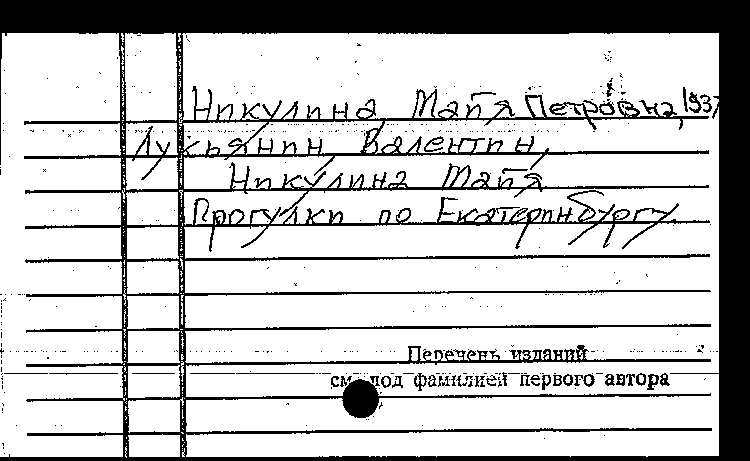 Никулина, Майя Петровна, 1937
Лукьянин, Валентин,
Никулина Майя
Прогулки по Екатеринбургу.
Перечень изданий
см. под фамилией первого автора